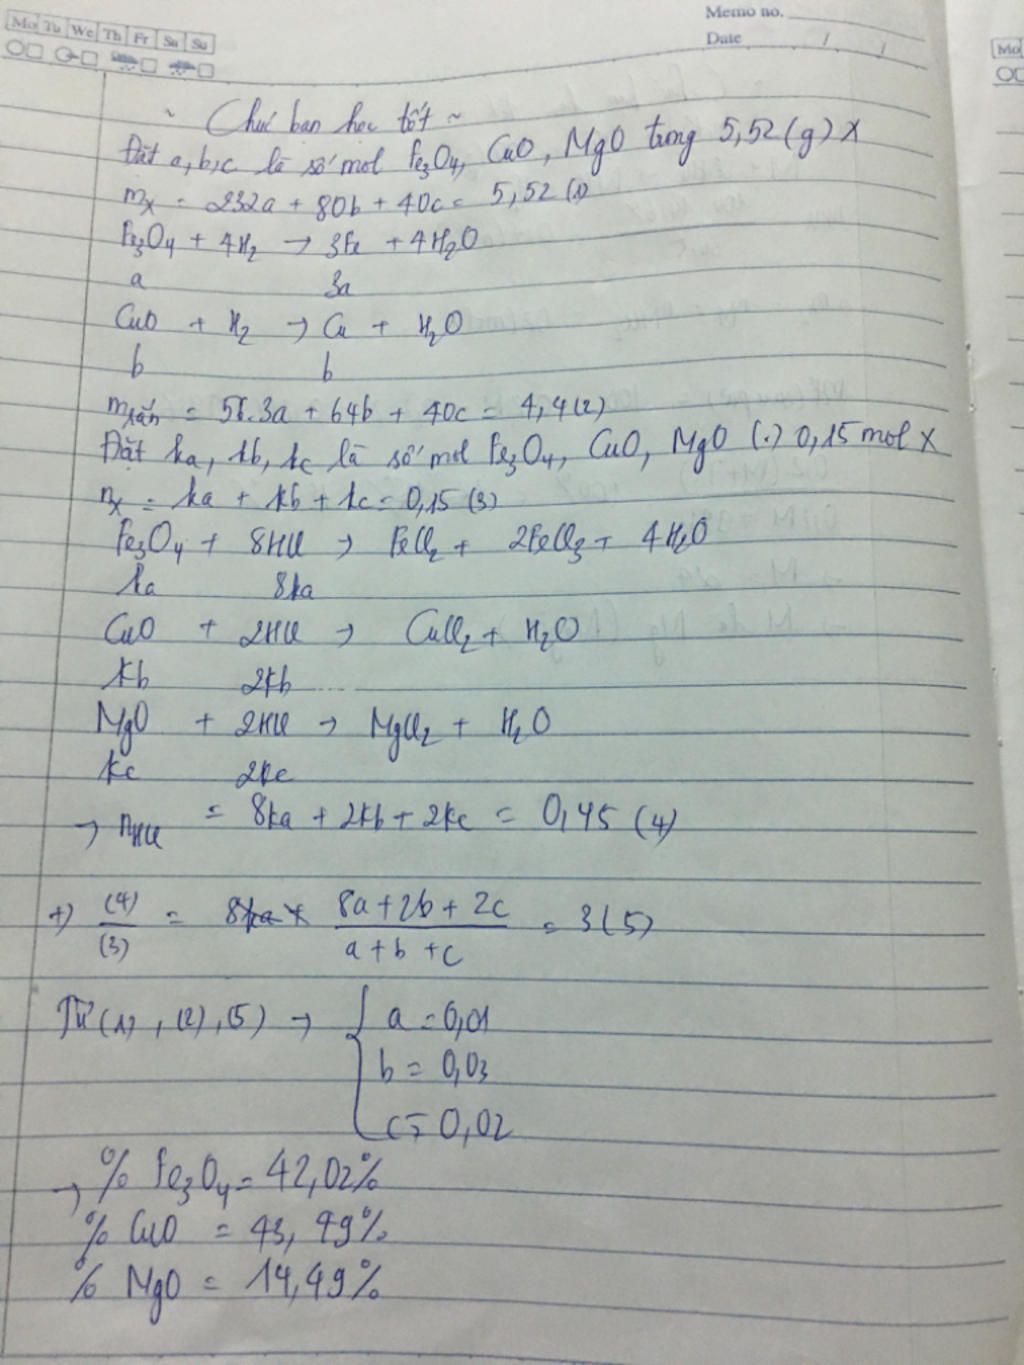 Mo Tu We Th Fr Sa Su
Memo no.
Date / /
Mo
~ Chúc bạn học tốt ~
Đặt a, b, c là số mol Fe3O4, CuO, MgO trong 5,52(g) X
mX = 232a + 80b + 40c = 5,52 (1)
Fe3O4 + 4H2 → 3Fe + 4H2O
a 3a
CuO + H2 → Cu + H2O
b b
mrắn = 56.3a + 64b + 40c = 4,4 (2)
Đặt ka, kb, kc là số mol Fe3O4, CuO, MgO (.) 0,15 mol X
nX = ka + kb + kc = 0,15 (3)
Fe3O4 + 8HCl → FeCl2 + 2FeCl3 + 4H2O
ka 8ka
CuO + 2HCl → CuCl2 + H2O
kb 2kb
MgO + 2HCl → MgCl2 + H2O
kc 2kc
→ nHCl = 8ka + 2kb + 2kc = 0,45 (4)
+) (4)/(3) = (8a + 2b + 2c)/(a + b + c) = 3 (5)
Từ (1), (2), (5) → { a = 0,01
b = 0,03
c = 0,02
→ % Fe3O4 = 42,02%
% CuO = 43,49%
% MgO = 14,49%